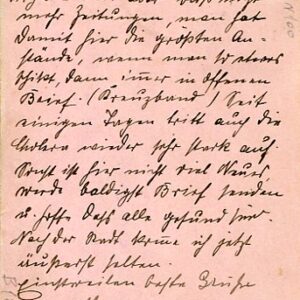 mehr Zeitungen, man hat
damit hier die größten An-
stände, wenn man so etwas
schickt, dann immer in offenem
Brief. (Kreuzband) Seit
einigen Tagen tritt auch die
Cholera wieder sehr stark auf.
Sonst ist hier nicht viel Neues,
werde baldigst Brief senden
u. hoffe daß alle gesund sind.
Nach der Stadt komme ich jetzt
äußerst selten.
Einstweilen beste Grüße